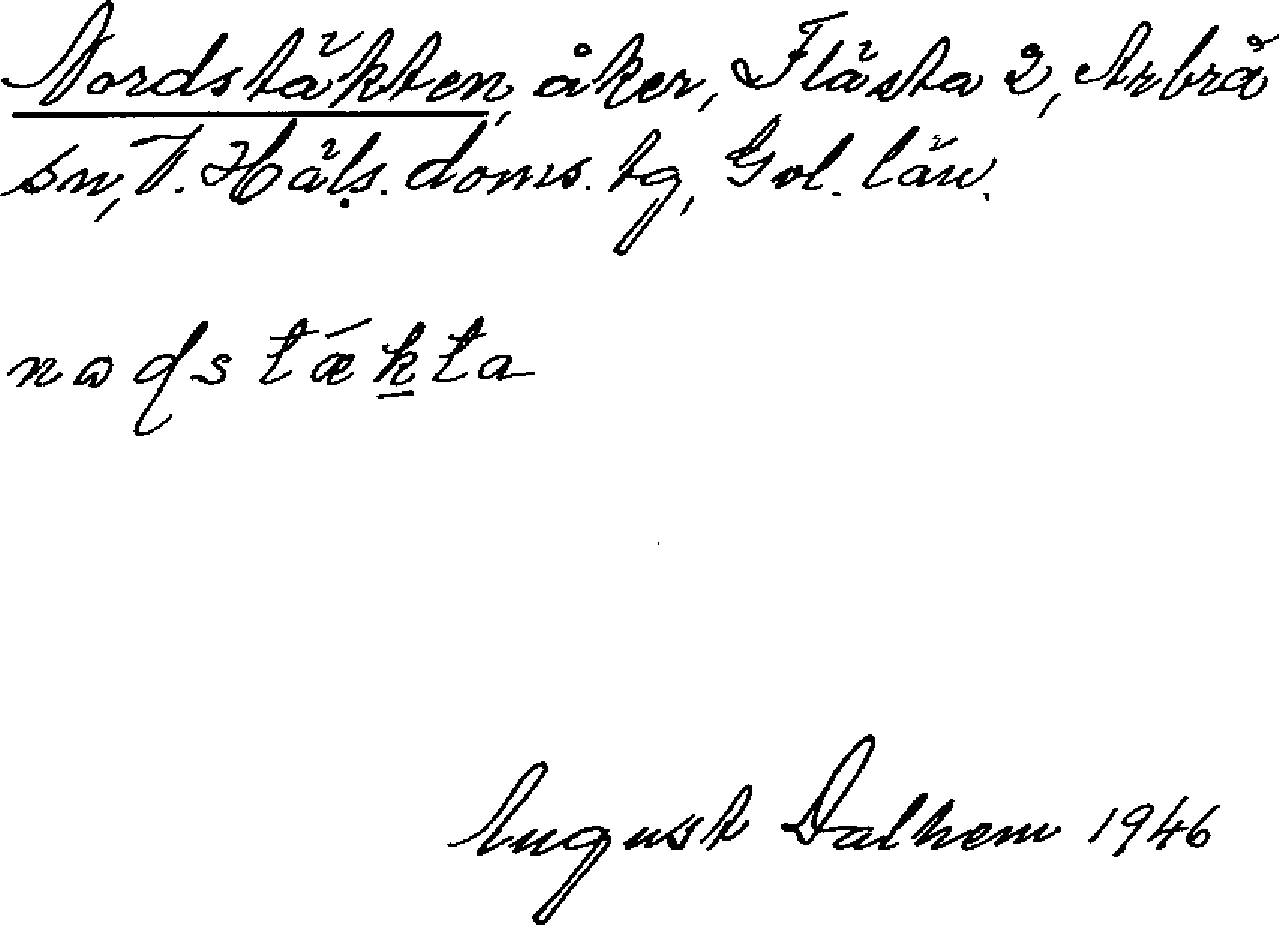 Nordstäkten, åker, Flästa 2, Arbrå
sn, V. Häls. doms. tg, Gvl. län.
nɷɖstǽk̲ta
August Dalhem 1946